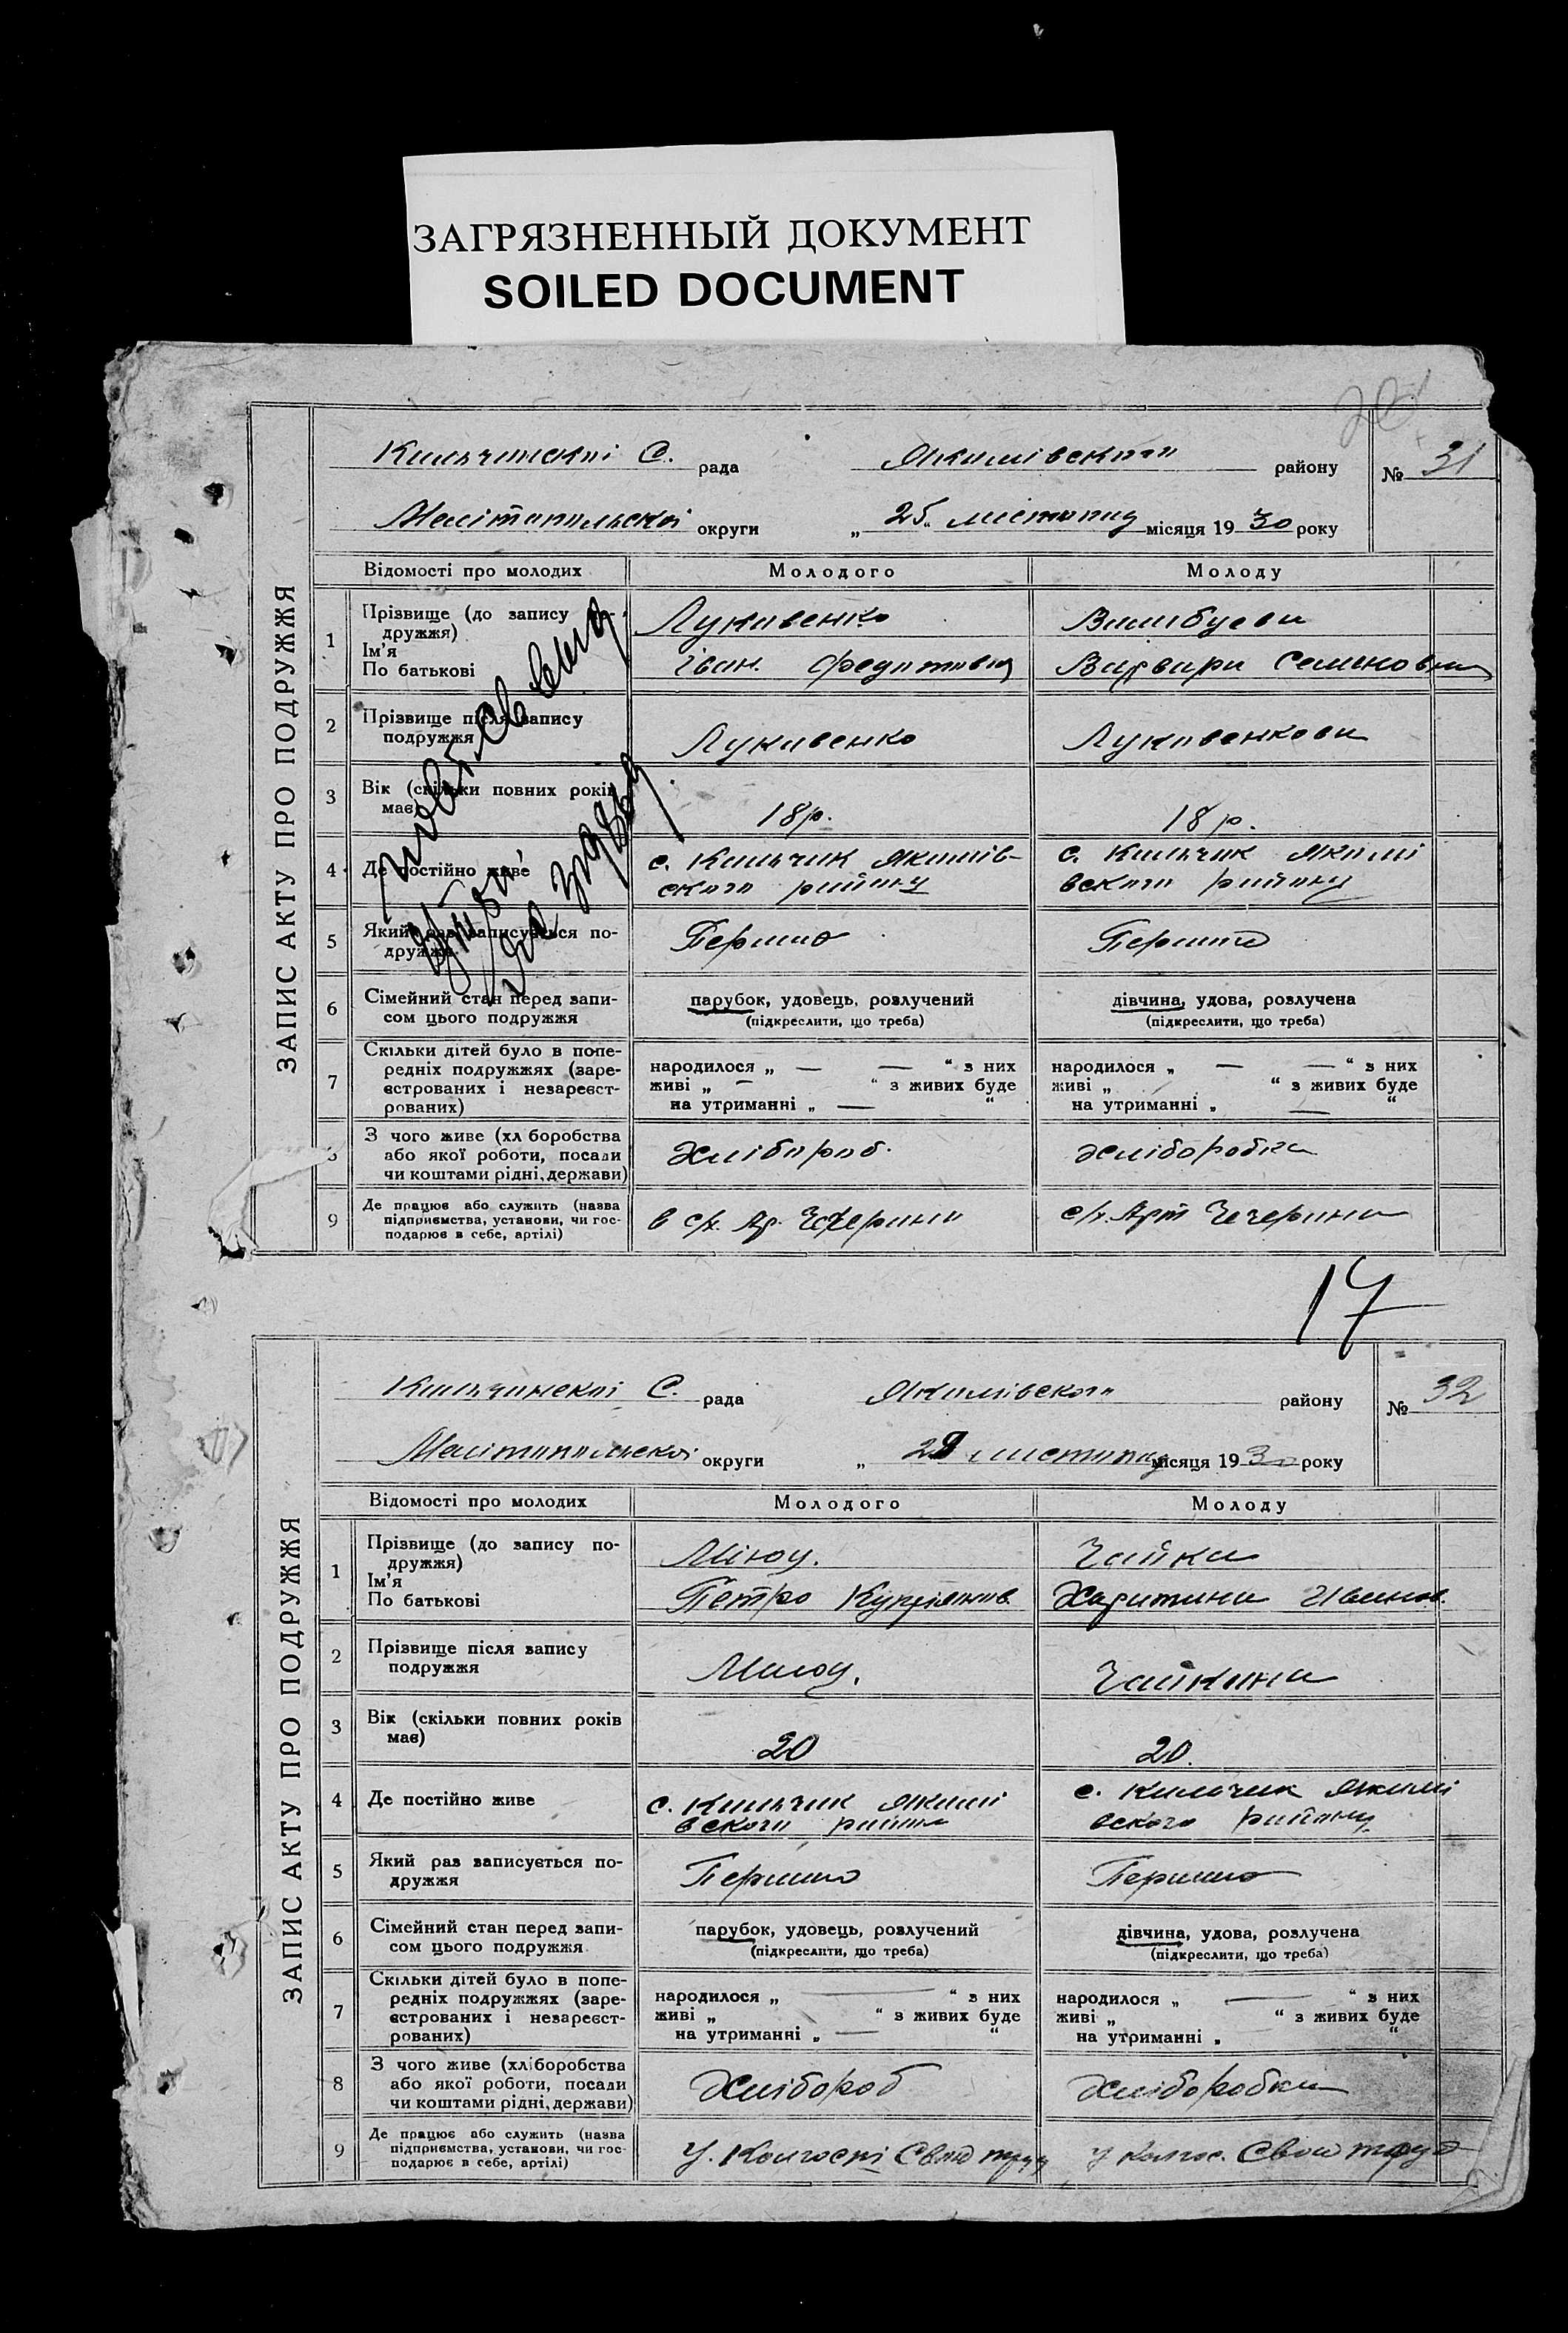 ЗАГРЯЗНЕННЫЙ ДОКУМЕНТ
SOILED DOCUMENT
ЗАПИС АКТУ ПРО ПОДРУЖЖЯ
С. рада Якимівского району № 31
Мелітопольскої округи „25“ листопад місяця 1930 року
Відомості про молодих Молодого Молоду
1 Прізвище (до запису по-
дружжя)
Ім'я
По батькові
Лукавенко
Іван.
Варвара Семеновна
2 Прізвище після запису
подружжя
Лукавенко Лукавенкова
3 Вік (скільки повних років
має)
18 р. 18 р.
4 Де постійно живе
с. Кильчик Якимів-
ского району
с. Кильчик Якимі
вского району
5 Який раз записується по-
дружжя
Перший Перший
6 Сімейний стан перед запи-
сом цього подружжя
парубок, удовець, розлучений
(підкреслити, що треба)
дівчина, удова, розлучена
(підкреслити, що треба)
7 Скільки дітей було в попе-
редніх подружжях (заре-
єстрованих і незареєст-
рованих)
народилося „ — — “ з них
живі „ — “ з живих буде
на утриманні „ — “
народилося „ — — “ з них
живі „ “ з живих буде
на утриманні „ — “
З чого живе (хл боробства
або якої роботи, посади
чи коштами рідні, держави)
Хлібороб. Хліборобка
9 Де працює або служить (назва
підприємства, установи, чи гос-
подарює в себе, артілі)
в с/х. Ар. Чечерина
с/х. Арт Чечерина
17
ЗАПИС АКТУ ПРО ПОДРУЖЖЯ
С. рада Якимівского району № 32
Мелітопольскої округи „ листопад місяця 1930 року
Відомості про молодих Молодого Молоду
1 Прізвище (до запису по-
дружжя)
Ім'я
По батькові
Чайка
Петро Купріянов.
Харитина Иванов.
2 Прізвище після запису
подружжя
Чайкина
3 Вік (скільки повних років
має)
20 20.
4 Де постійно живе
с. Кильчик Якимі
вского район
с. Кильчик Якимі
вского району
5 Який раз записується по-
дружжя
Перший Перший
6 Сімейний стан перед запи-
сом цього подружжя
парубок, удовець, розлучений
(підкреслити, що треба)
дівчина, удова, розлучена
(підкреслити, що треба)
7 Скільки дітей було в попе-
редніх подружжях (заре-
єстрованих і незареєст-
рованих)
народилося „ — “ з них
живі „ “ з живих буде
на утриманні „ — “
народилося „ — “ з них
живі „ “ з живих буде
на утриманні „ “
8 З чого живе (хліборобства
або якої роботи, посади
чи коштами рідні, держави)
Хлібороб Хліборобка
9 Де працює або служить (назва
підприємства, установи, чи гос-
подарює в себе, артілі)
У. Колгоспі Свой труд
У Колгос. Свой труд